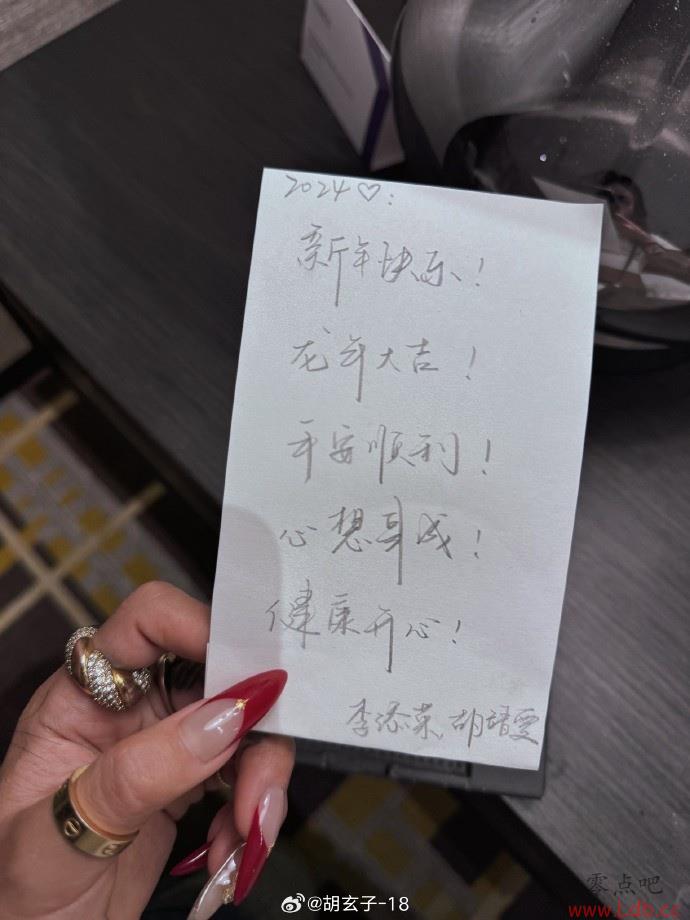 2024♡:
新年快乐!
龙年大吉!
平安顺利!
心想事成!
健康开心!
李添荣、胡靖雯
@胡玄子-18
零点吧